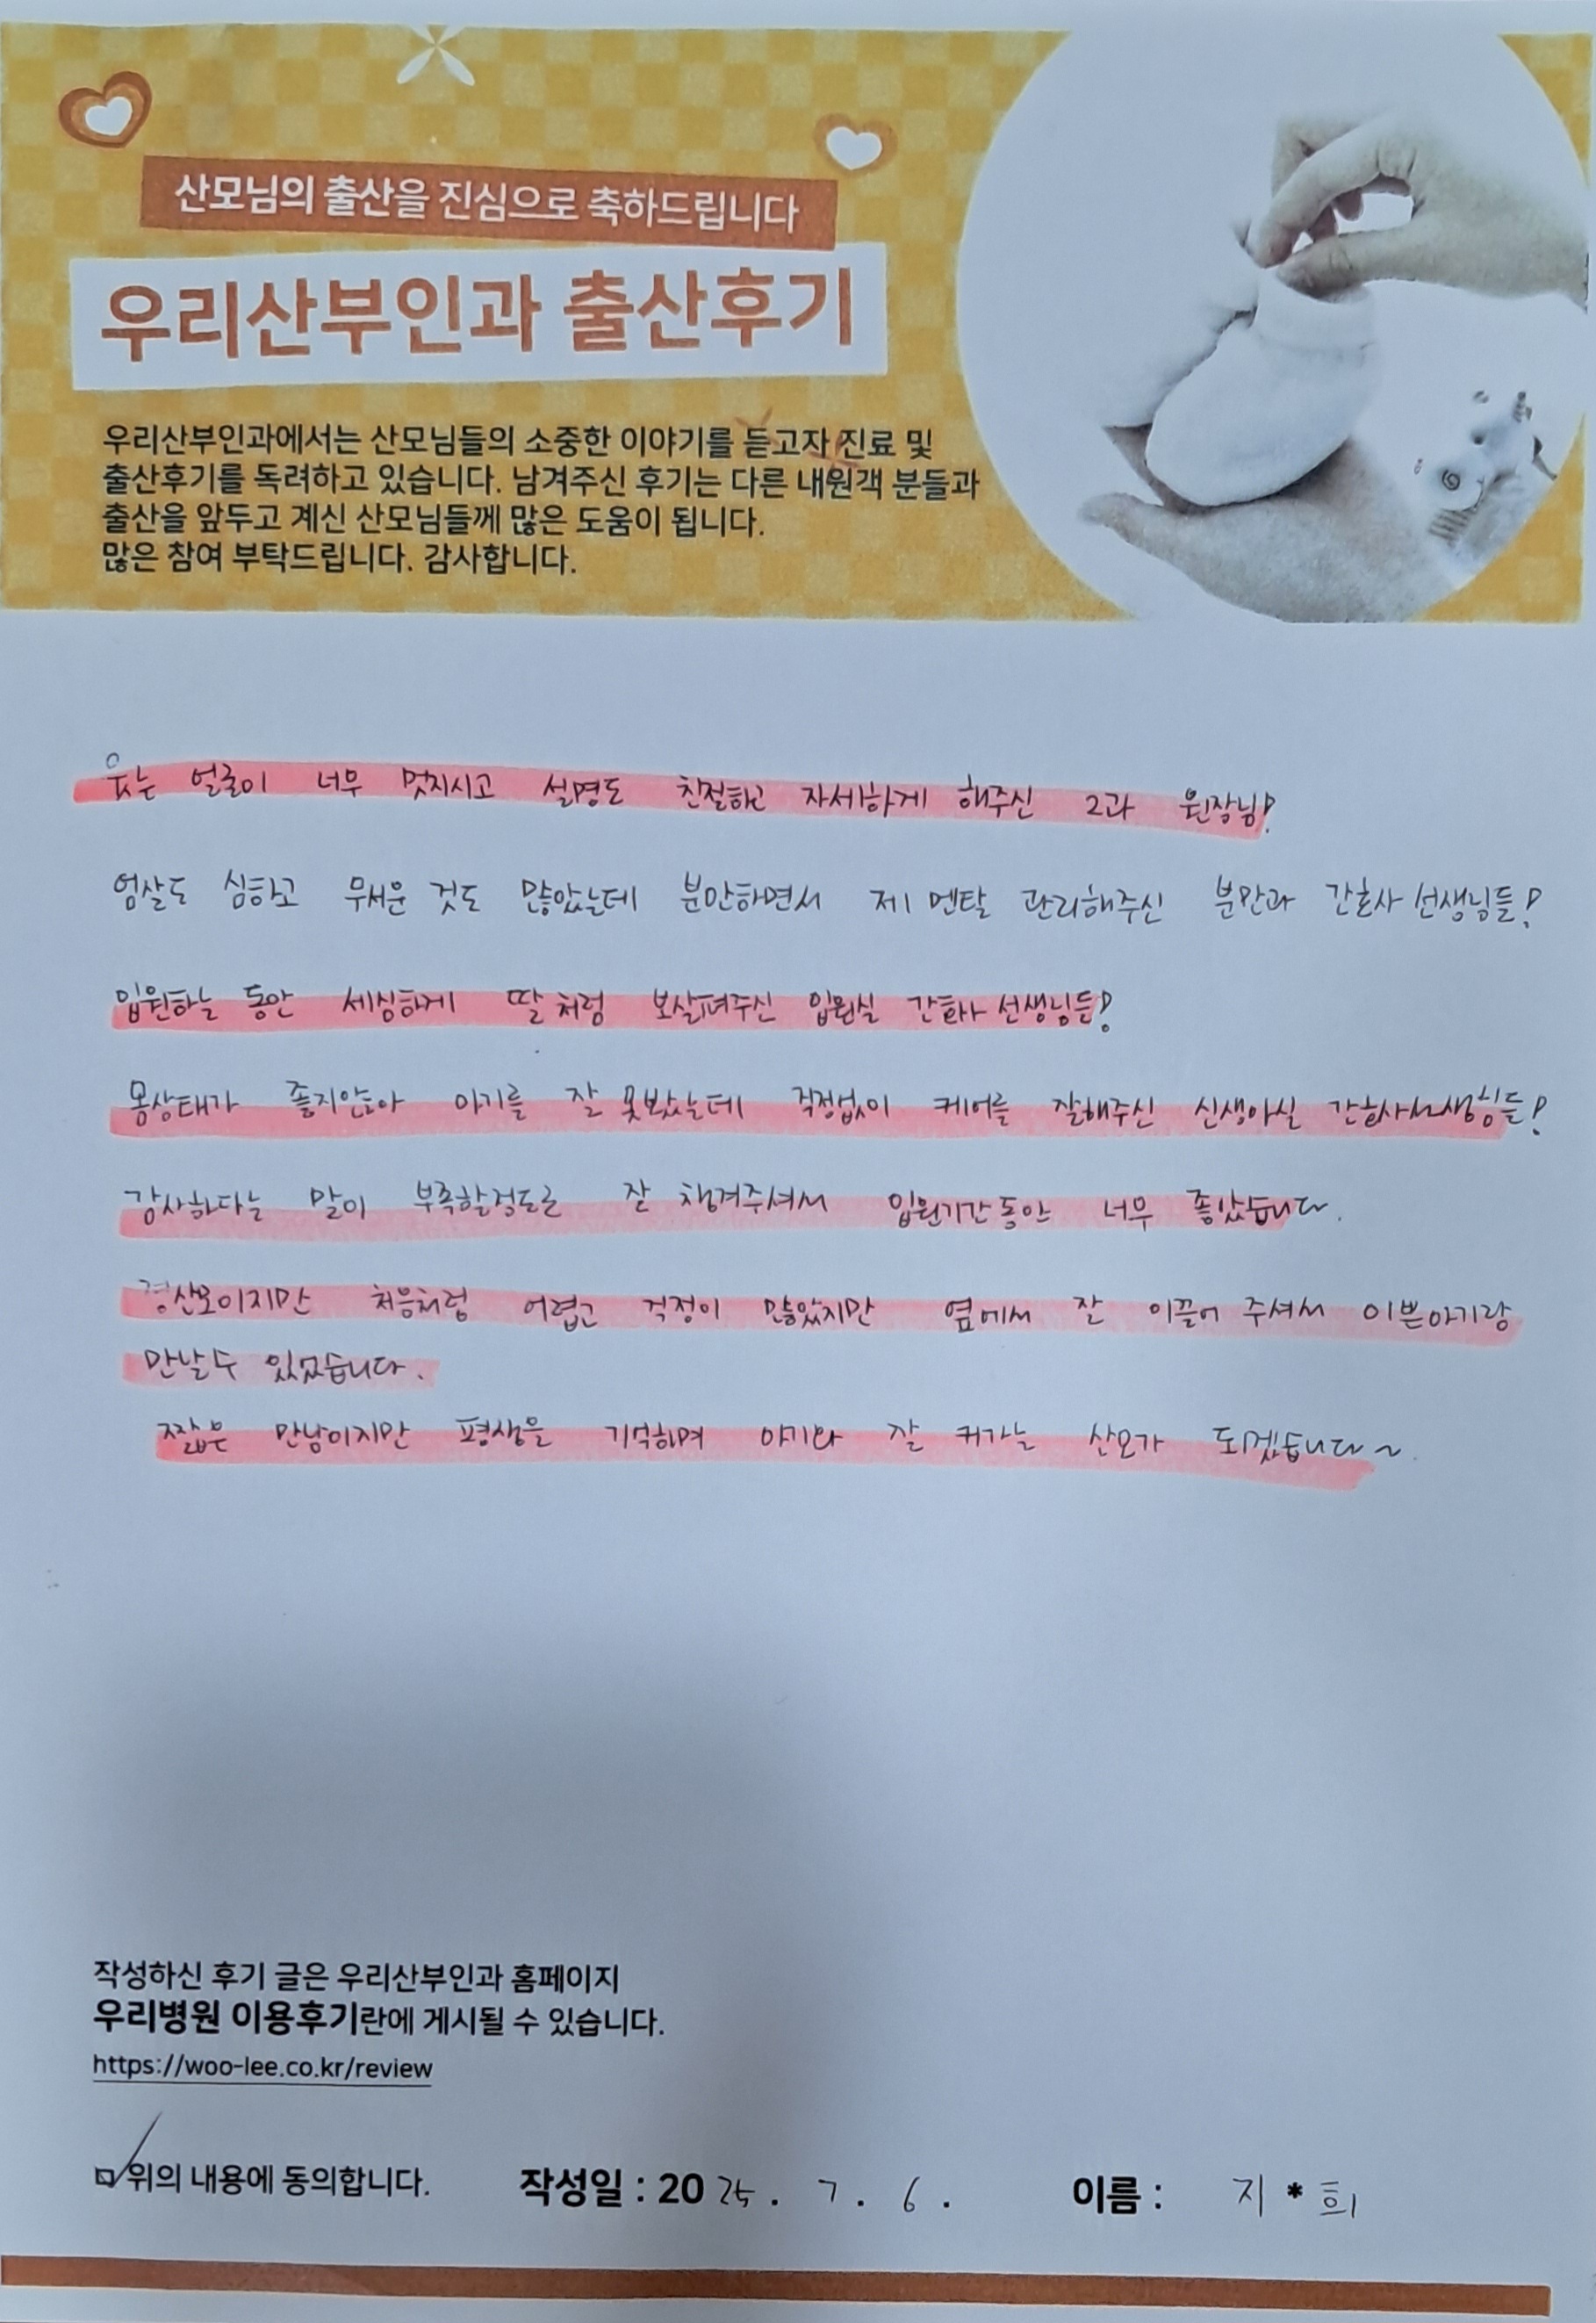 산모님의 출산을 진심으로 축하드립니다
우리산부인과 출산후기
우리산부인과에서는 산모님들의 소중한 이야기를 듣고자 진료 및
출산후기를 독려하고 있습니다. 남겨주신 후기는 다른 내원객 분들과
출산을 앞두고 계신 산모님들께 많은 도움이 됩니다.
많은 참여 부탁드립니다. 감사합니다.
웃는 얼굴이 너무 멋지시고 설명도 친절하고 자세하게 해주신 2과 원장님!
엄살도 심하고 무서운 것도 많았는데 분만하면서 제 멘탈 관리해주신 분만과 간호사 선생님들!
입원하는 동안 세심하게 딸처럼 보살펴주신 입원실 간호사 선생님들!
몸상태가 좋지않아 아기를 잘 못봤는데 걱정없이 케어를 잘해주신 신생아실 간호사선생님들!
감사하다는 말이 부족할정도로 잘 챙겨주셔서 입원기간동안 너무 좋았습니다.
경산모이지만 처음처럼 어렵고 걱정이 많았지만 옆에서 잘 이끌어 주셔서 이쁜아기랑
만날수 있었습니다.
짧은 만남이지만 평생을 기억하며 아기와 잘 커가는 산모가 되겠습니다~
작성하신 후기 글은 우리산부인과 홈페이지
우리병원 이용후기란에 게시될 수 있습니다.
https://woo-lee.co.kr/review
위의 내용에 동의합니다. 작성일 : 2025. 7. 6. 이름 : 지*희